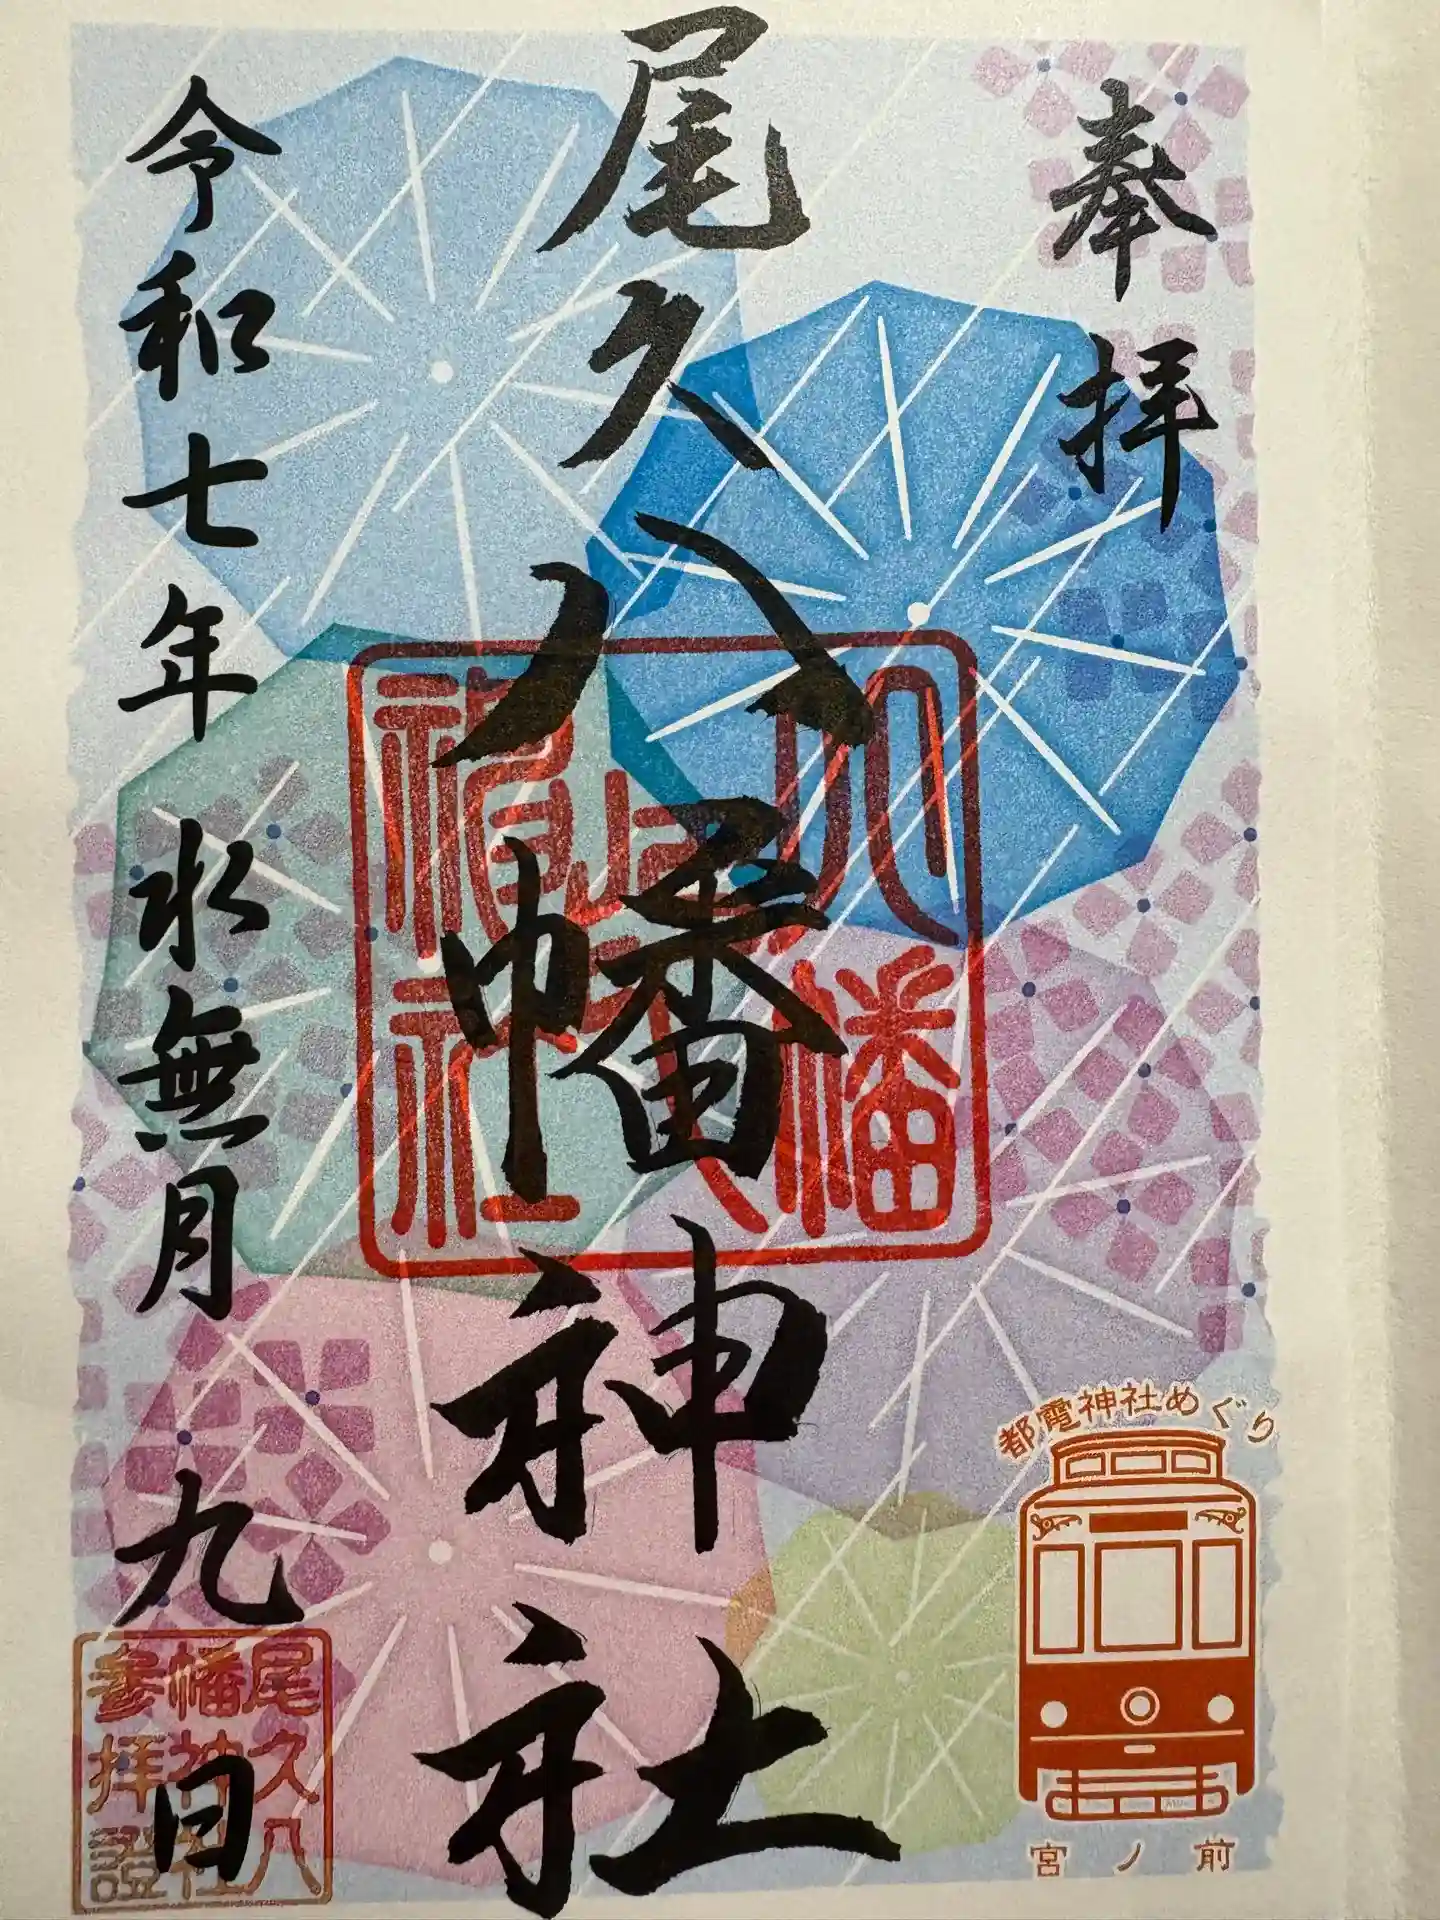 奉拝
尾久八幡神社
令和七年水無月九日
都電神社めぐり
宮ノ前
尾久八
幡神社
参拝證